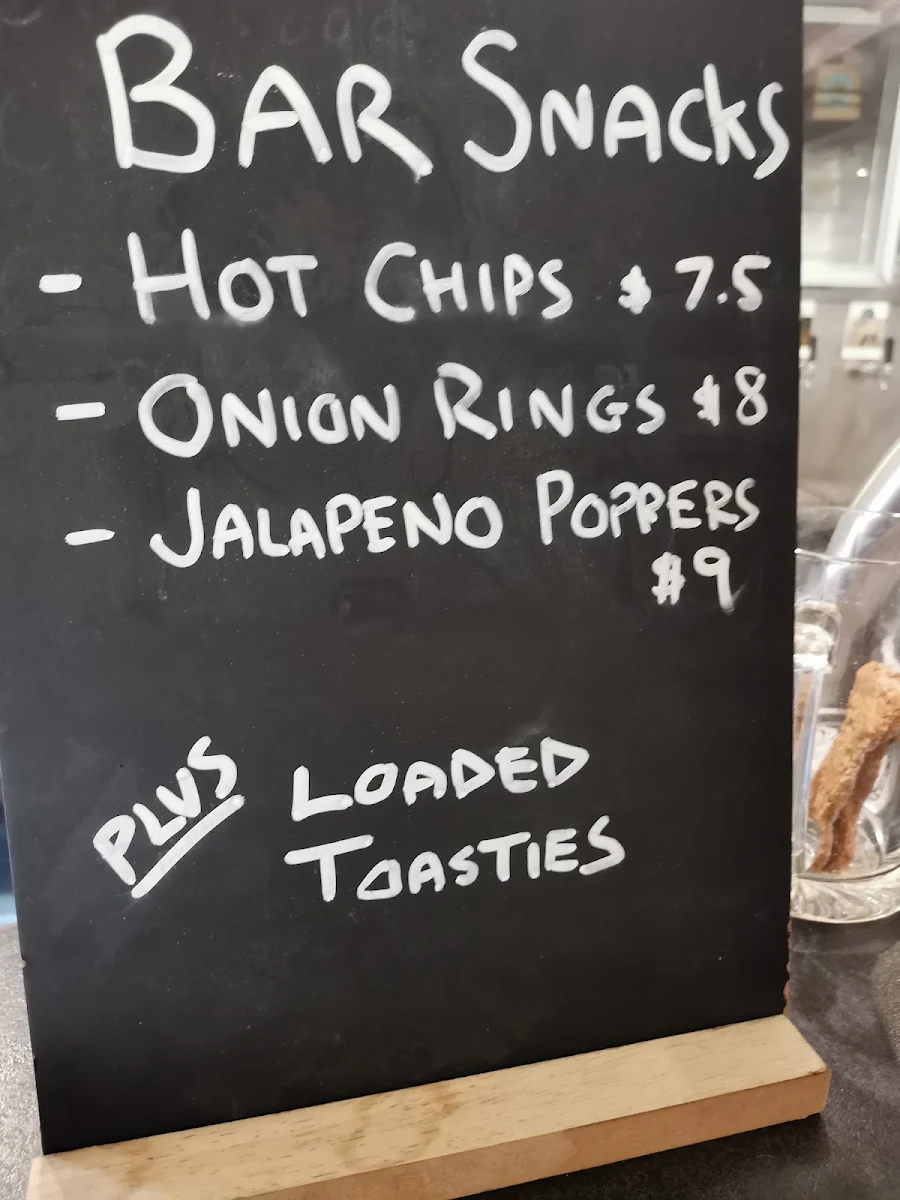 BAR SNACKS
- HOT CHIPS $7.5
- ONION RINGS $8
- JALAPENO POPPERS
$9
PLUS LOADED
TOASTIES